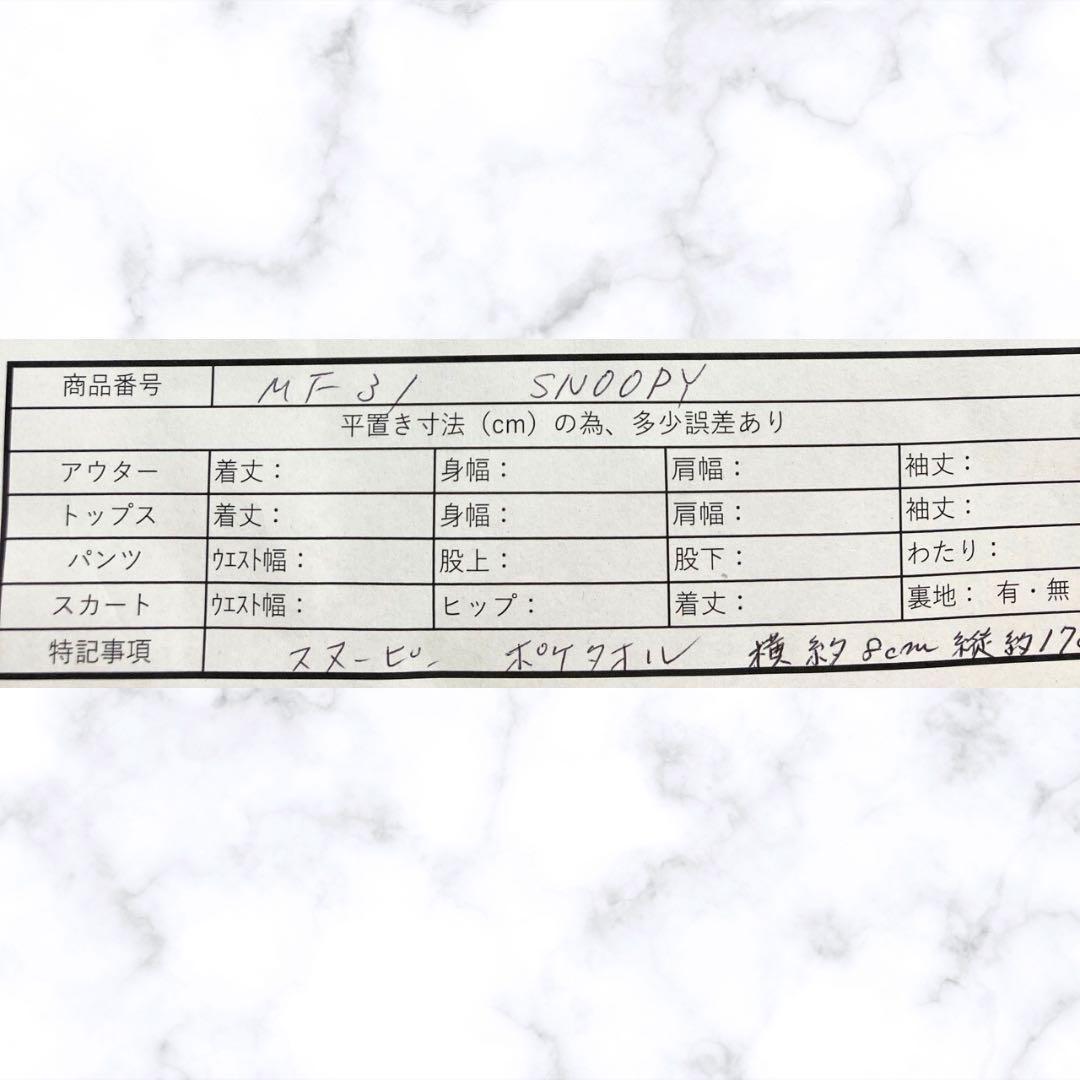 商品番号 MF-31 SNOOPY
平置き寸法（cm）の為、多少誤差あり
アウター 着丈： 身幅： 肩幅： 袖丈：
トップス 着丈： 身幅： 肩幅： 袖丈：
パンツ ｳｴｽﾄ幅： 股上： 股下： わたり：
スカート ｳｴｽﾄ幅： ヒップ： 着丈： 裏地： 有・無
特記事項 スヌーピー ポケタオル 横約8cm 縦約17c